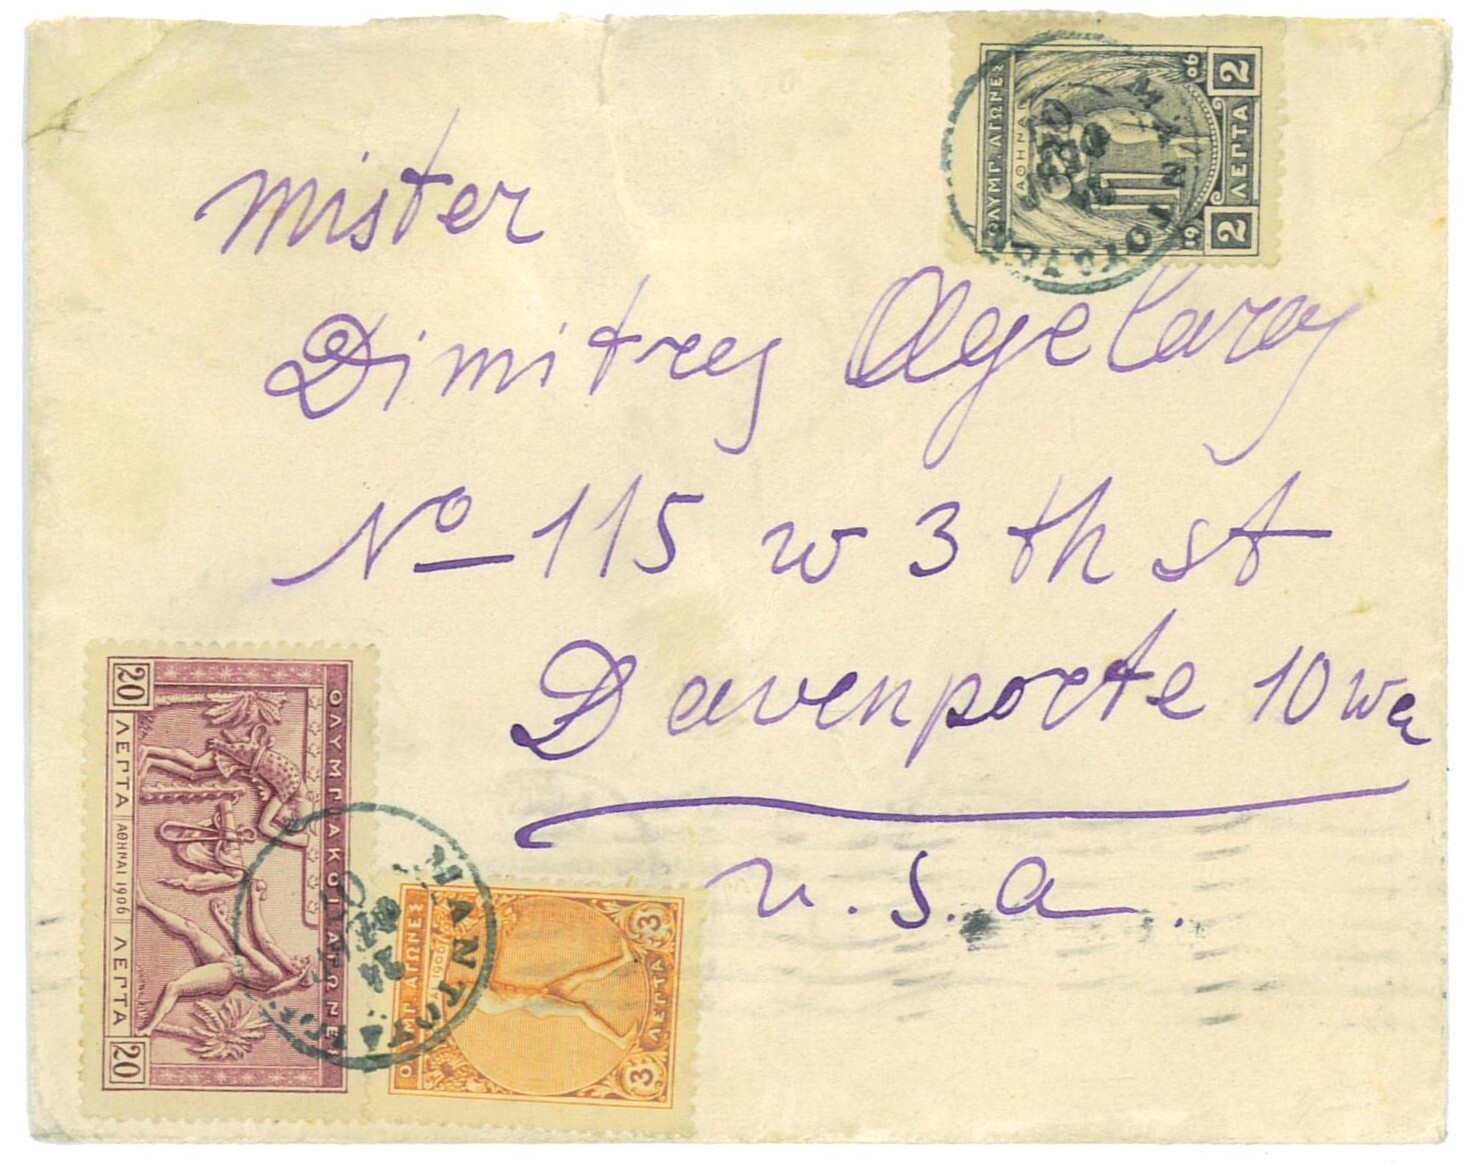 Mister
Dimitrey Agelarey
No 115 w 3 th st
Davenporte 10wa
u.s.a.
ΟΛΥΜΠ. ΑΓΩΝΕΣ
ΑΘΗΝΑΙ
19 06
2 ΛΕΠΤΑ 2
ΟΛΥΜΠΙΑΚΟΙ ΑΓΩΝΕΣ
20 ΛΕΠΤΑ ΑΘΗΝΑΙ 1906 ΛΕΠΤΑ 20
ΜΑΝΤΟΥΔΙΟΝ
ΟΛΥΜΠ. ΑΓΩΝΕΣ
1906
3 ΛΕΠΤΑ 3